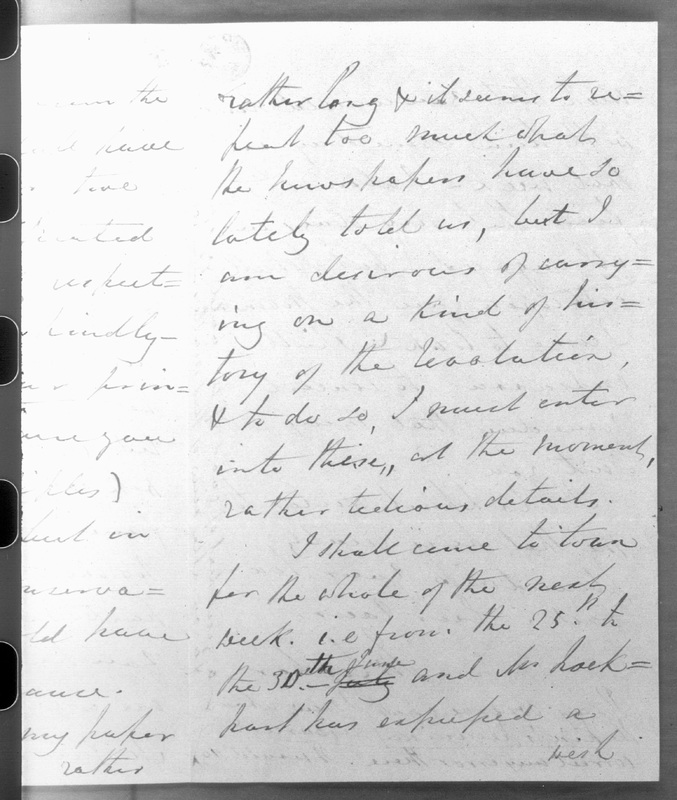 the
have
tive
respect=
kindly-
prin=
you
ples)
but in
nserva=
ld have
ance.
my paper
rather
rather long & it seems to re=
peat too much what
the newspapers have so
lately told us, but I
am desirous of carry=
ing on a kind of his=
tory of the Revolution,
& to do so, I must enter
into these, at the moment,
rather tedious details.
I shall come to town
for the whole of the next
week. i.e from the 25.th to
the 30.th June July and Mr Lock=
hart has expressed a
wish